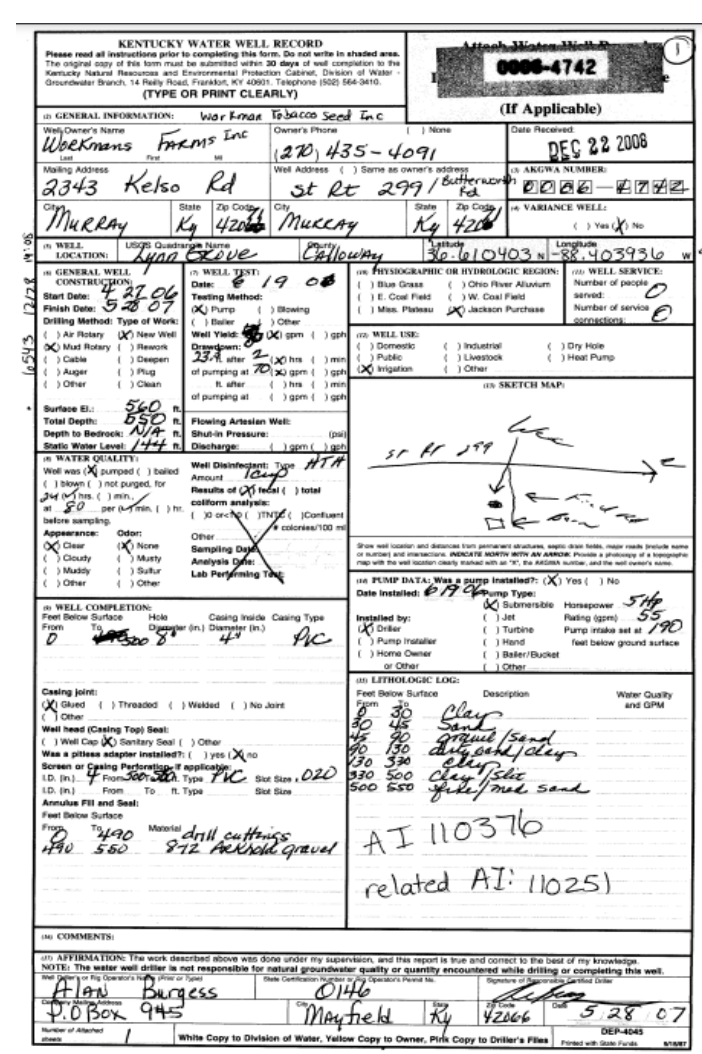 KENTUCKY WATER WELL RECORD
Please read all instructions prior to completing this form. Do not write in shaded area.
The original copy of this form must be submitted within 30 days of well completion to the
Kentucky Natural Resources and Environmental Protection Cabinet, Division of Water -
Groundwater Branch, 14 Reilly Road, Frankfort, KY 40601. Telephone (502) 564-3410.
(TYPE OR PRINT CLEARLY)
Attach Water Well
1
0006-4742
(If Applicable)
(2) GENERAL INFORMATION: Workman Tobacco Seed Inc
Well Owner's Name Owner's Phone ( ) None Date Received:
Workmans Farms Inc (270) 435-4091 DEC 22 2008
Last First MI
Mailing Address Well Address ( ) Same as owner's address (3) AKGWA NUMBER:
2343 Kelso Rd St Rt 299/Butterworth Rd 0006-4742
City State Zip Code City State Zip Code (4) VARIANCE WELL:
Murray Ky Murray Ky ( ) Yes (X) No
(5) WELL LOCATION: USGS Quadrangle Name County Latitude Longitude
Lynn Grove Calloway 36.610403 N -88.403936 W
(6) GENERAL WELL CONSTRUCTION:
Start Date: 4 27 06
Finish Date: 5 28 07
Drilling Method: Type of Work:
( ) Air Rotary (X) New Well
(X) Mud Rotary ( ) Rework
( ) Cable ( ) Deepen
( ) Auger ( ) Plug
( ) Other ( ) Clean
Surface El.: 560 ft.
Total Depth: 550 ft.
Depth to Bedrock: N/A ft.
Static Water Level: 144 ft.
(7) WELL TEST:
Date: 6 19 06
Testing Method:
(X) Pump ( ) Blowing
( ) Bailer ( ) Other
Well Yield: (X) gpm ( ) gph
Drawdown:
23 ft. after 2 (X) hrs ( ) min
of pumping at 70 (X) gpm ( ) gph
ft. after ( ) hrs ( ) min
of pumping at ( ) gpm ( ) gph
Flowing Artesian Well:
Shut-in Pressure: (psi)
Discharge: ( ) gpm ( ) gph
(10) PHYSIOGRAPHIC OR HYDROLOGIC REGION:
( ) Blue Grass ( ) Ohio River Alluvium
( ) E. Coal Field ( ) W. Coal Field
( ) Miss. Plateau (X) Jackson Purchase
(11) WELL SERVICE:
Number of people
served: 0
Number of service
connections: 0
(12) WELL USE:
( ) Domestic ( ) Industrial ( ) Dry Hole
( ) Public ( ) Livestock ( ) Heat Pump
(X) Irrigation ( ) Other
(13) SKETCH MAP:
St Rt 299
Show well location and distances from permanent structures, septic drain fields, major roads (include name
or number) and intersections. INDICATE NORTH WITH AN ARROW. Provide a photocopy of a topographic
map with the well location clearly marked with an "X", the AKGWA number, and the well owner's name.
(8) WATER QUALITY:
Well was (X) pumped ( ) bailed
( ) blown ( ) not purged, for
24 (✓) hrs. ( ) min.,
at 80 per (✓) min. ( ) hr.
before sampling.
Appearance: Odor:
(X) Clear (X) None
( ) Cloudy ( ) Musty
( ) Muddy ( ) Sulfur
( ) Other ( ) Other
Well Disinfectant: Type HTH
Amount 1 cup
Results of (X) fecal ( ) total
coliform analysis:
( ) 0 or <1 ( ) TNTC ( ) Confluent
# colonies/100 ml
Other
Sampling Date:
Analysis Date:
Lab Performing Test:
(14) PUMP DATA: Was a pump installed?: (X) Yes ( ) No
Date Installed: 6 19 06 Pump Type:
(X) Submersible Horsepower 5 Hp
Installed by: ( ) Jet Rating (gpm) 55
(X) Driller ( ) Turbine Pump intake set at 190
( ) Pump Installer ( ) Hand feet below ground surface
( ) Home Owner ( ) Bailer/Bucket
or Other ( ) Other
(9) WELL COMPLETION:
Feet Below Surface Hole Casing Inside Casing Type
From To Diameter (in.) Diameter (in.)
0 500 8" 4" PVC
Casing joint:
(X) Glued ( ) Threaded ( ) Welded ( ) No Joint
( ) Other
Well head (Casing Top) Seal:
( ) Well Cap (X) Sanitary Seal ( ) Other
Was a pitless adapter installed?: ( ) yes (X) no
Screen or Casing Perforation, if applicable:
I.D. (in.) 4 From 500 To ft. Type PVC Slot Size .020
I.D. (in.) From To ft. Type Slot Size
Annulus Fill and Seal:
Feet Below Surface
From To Material
0 490 drill cuttings
490 550 8-12 gravel
(15) LITHOLOGIC LOG:
Feet Below Surface Description Water Quality
From To and GPM
0 30 Clay
30 45 Sand
45 90 gravel/Sand
90 130 dirty sand/clay
130 330 Clay
330 500 Clay/Silt
500 550 fine/med sand
AI 110376
related AI: 110251
(16) COMMENTS:
(17) AFFIRMATION: The work described above was done under my supervision, and this report is true and correct to the best of my knowledge.
NOTE: The water well driller is not responsible for natural groundwater quality or quantity encountered while drilling or completing this well.
Well Driller's or Rig Operator's Name (Print or Type) State Certification Number or Rig Operator's Permit No. Signature of Responsible Certified Driller
Alan Burgess 0146
Company Mailing Address City State Zip Code Date
P.O Box 945 Mayfield Ky 42066 5 28 07
Number of Attached sheets 1
White Copy to Division of Water, Yellow Copy to Owner, Pink Copy to Driller's Files
DEP-4045
Printed with State Funds